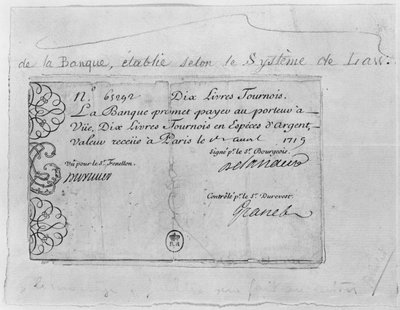 de la Banque, établie selon le Système de Law.
N.º 65292 Dix Livres Tournois.
La Banque promet payer au porteur à
Vüe, Dix Livres Tournois en Espèces d'Argent,
valeur reçeüe à Paris le avril 1719
Vû pour le S.r Fenellon.
Signé p.r le S.r Bourgeois.
Contrôlé p.r le S.r Durevest.
Granet